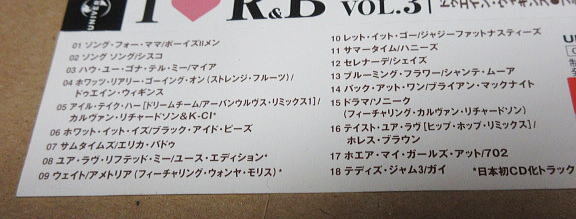 I ♥ R&B VOL.3
01 ソング・フォー・ママ/ボーイズIIメン
02 ソング ソング/シスコ
03 ハウ・ユー・ゴナ・テル・ミー/マイア
04 ホワッツ・リアリー・ゴーイング・オン(ストレンジ・フルーツ)/
ドゥエイン・ウィギンス
05 アイル・テイク・ハー[ドリームチーム/アーバンウルヴス・リミックス1]/
カルヴァン・リチャードソン&K-CI*
06 ホワット・イット・イズ/ブラック・アイド・ピーズ
07 サムタイムズ/エリカ・バドゥ
08 ユア・ラヴ・リフテッド・ミー/ユース・エディション*
09 ウェイト/アメトリア(フィーチャリング・ウォンヤ・モリス)*
10 レット・イット・ゴー/ジャジーファットナスティーズ
11 サマータイム/ハニーズ
12 セレナーデ/シェイズ
13 ブルーミング・フラワー/シャンテ・ムーア
14 バック・アット・ワン/ブライアン・マックナイト
15 ドラマ/ソニーク
(フィーチャリング・カルヴァン・リチャードソン)
16 テイスト・ユア・ラヴ[ヒップ・ホップ・リミックス]/
ホレス・ブラウン
17 ホエア・マイ・ガールズ・アット/702
18 テディズ・ジャム3/ガイ
*日本初CD化トラック